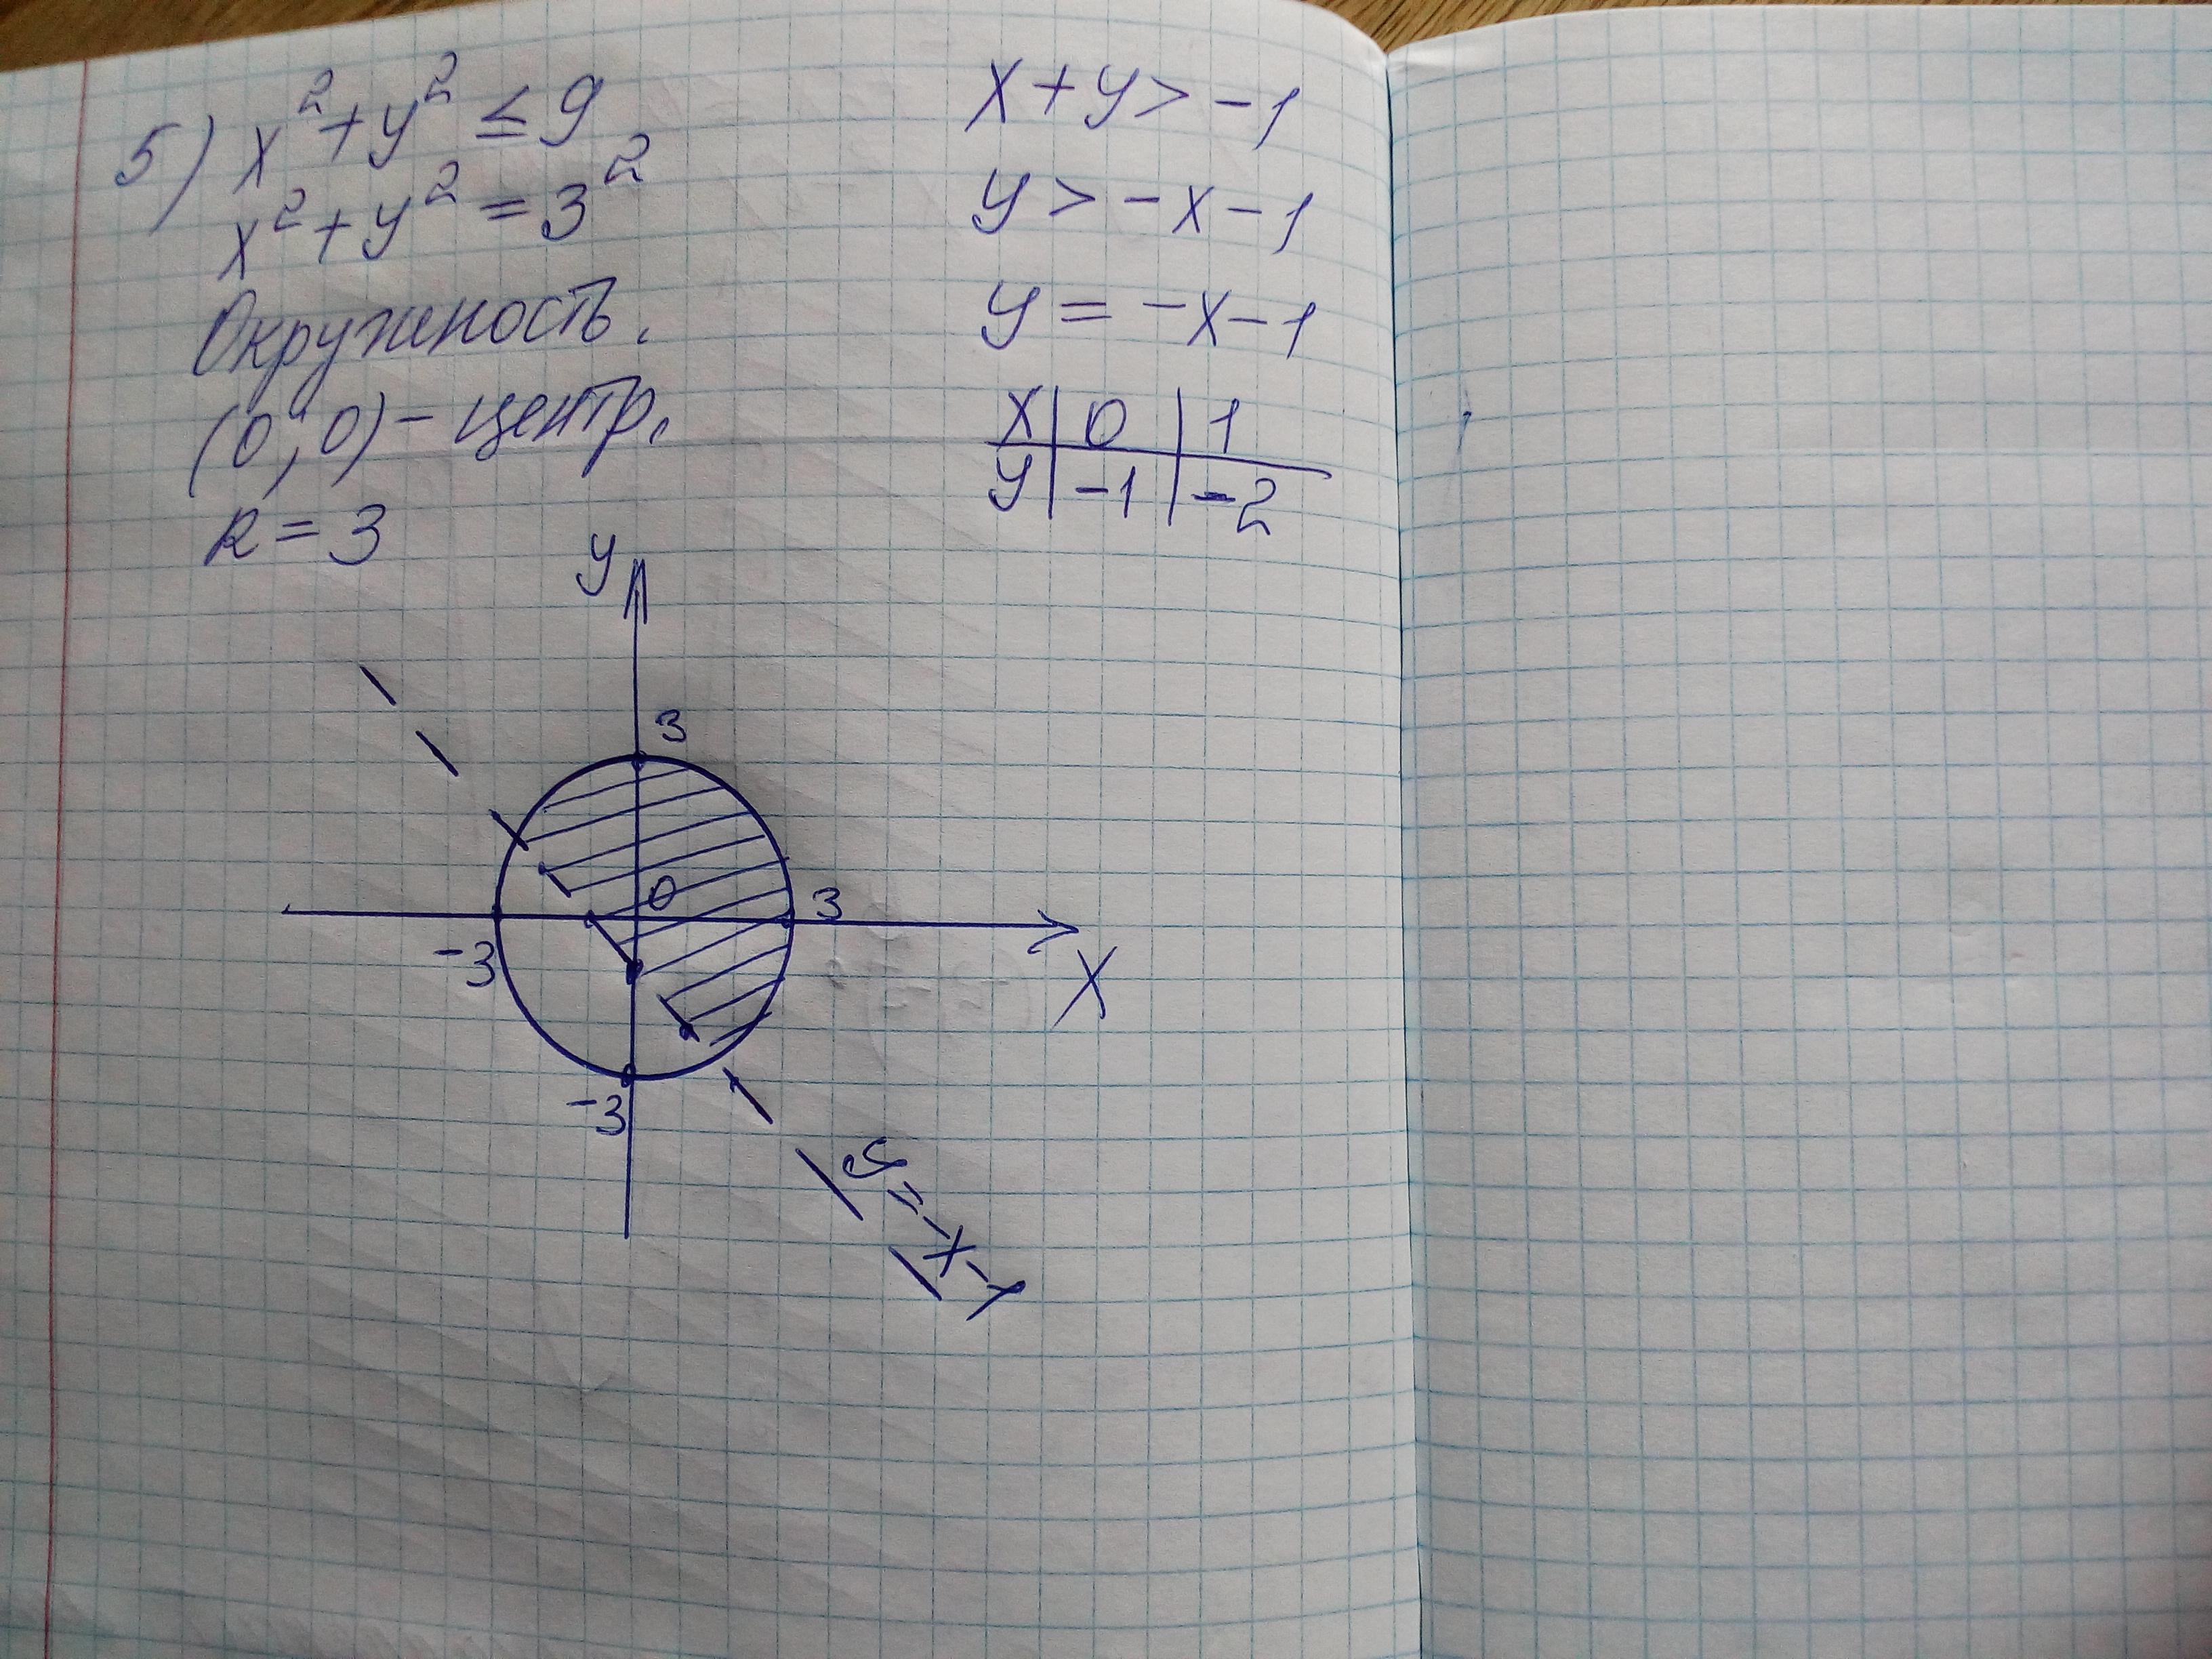 5) x² + y² ≤ 9
x² + y² = 3²
Окружность.
(0; 0) – центр.
R = 3
x + y > -1
y > -x - 1
y = -x - 1
x | 0 | 1
y | -1 | -2
y
3
0
3
-3
x
-3
y = -x - 1